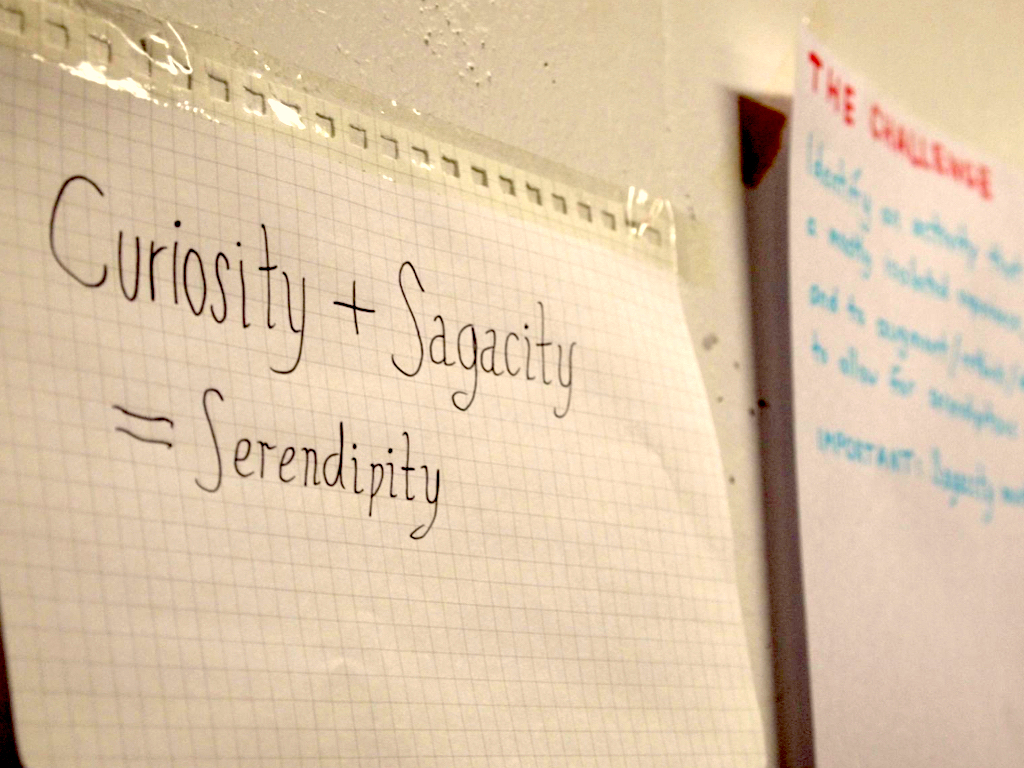 Curiosity + Sagacity
= Serendipity
THE CHALLENGE
Identify an activity that
a mostly isolated experience,
and to augment/
to allow for serendipitous
IMPORTANT: Sagacity